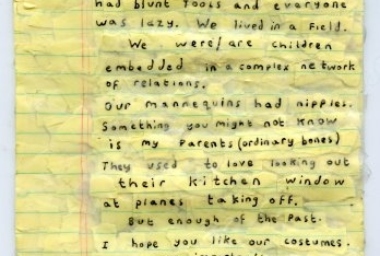 had blunt tools and everyone
was lazy. We lived in a field.
We were/are children
embedded in a complex network
of relations.
Our mannequins had nipples.
Something you might not know
is my parents (ordinary bones)
They used to love looking out
their kitchen window
at planes taking off.
But enough of the past.
I hope you like our costumes.